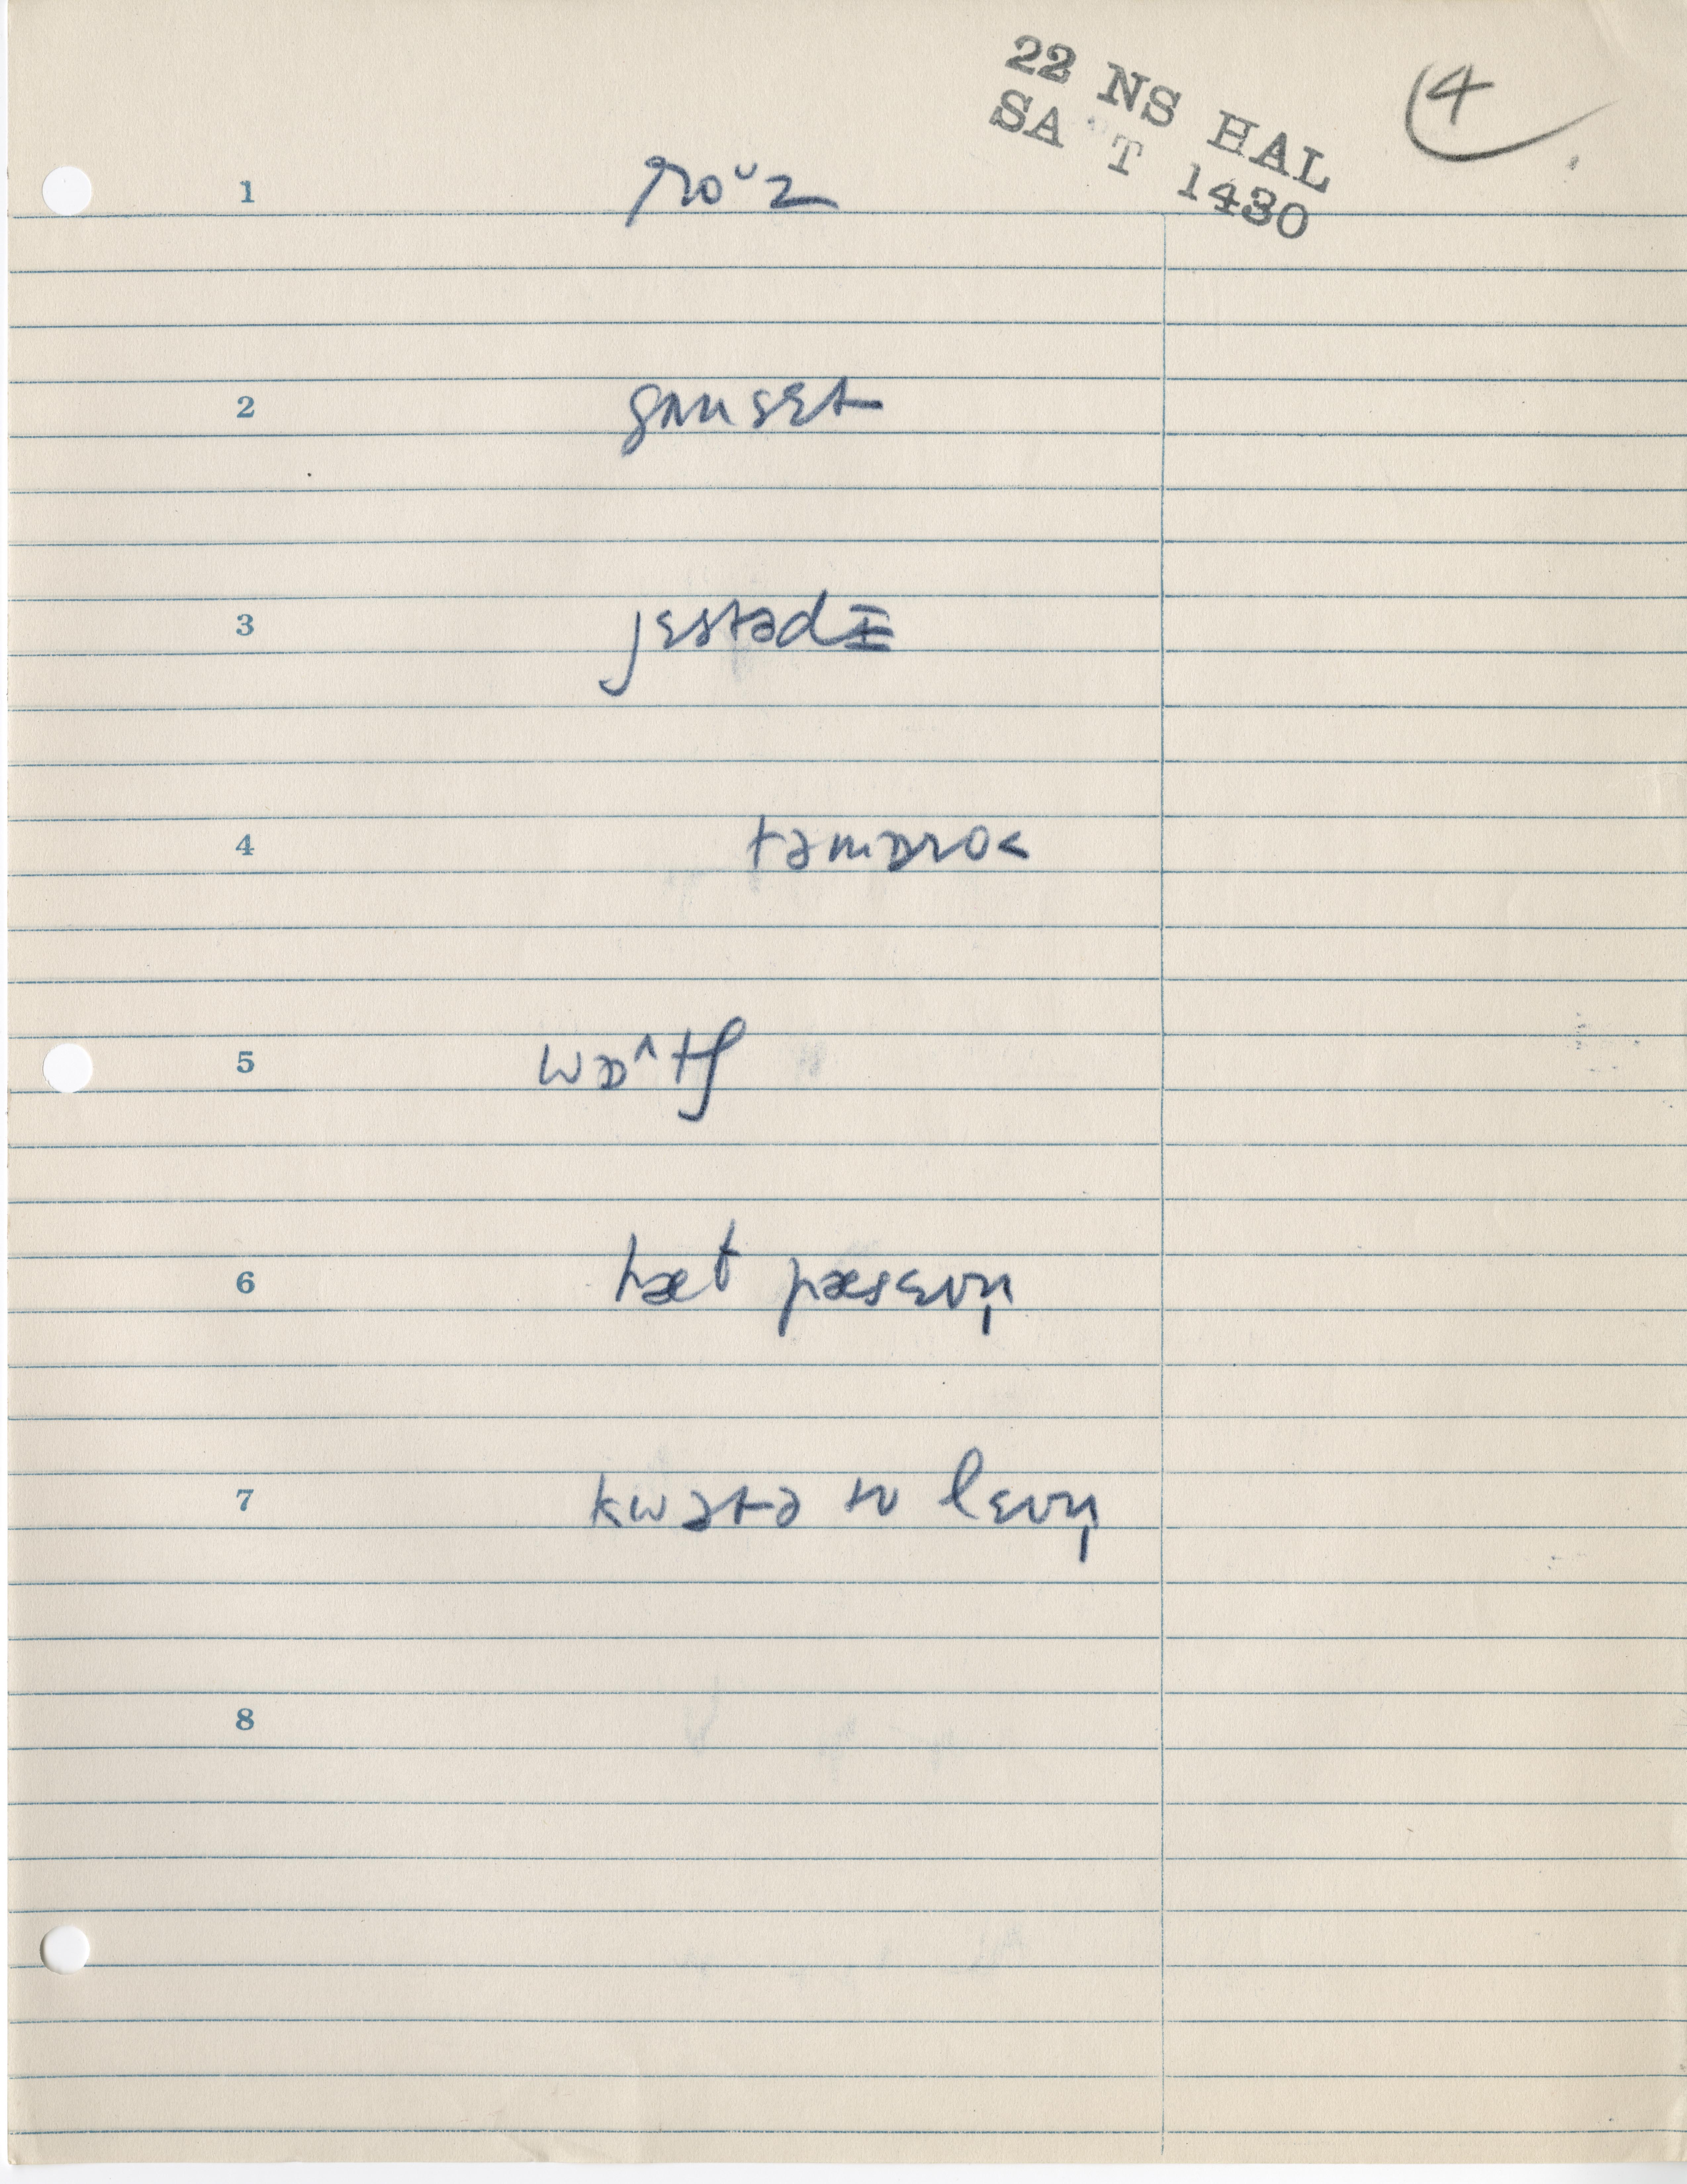 22 NS HAL
SA T 1430
4
1 roᵘz
2 sʌnsɛt
3 jɛstədɪ
4 təmɒro<
5 wɒ^tʃ
6 hæt pæsɛvṇ
7 kwɔtə tʊ lɛvṇ
8